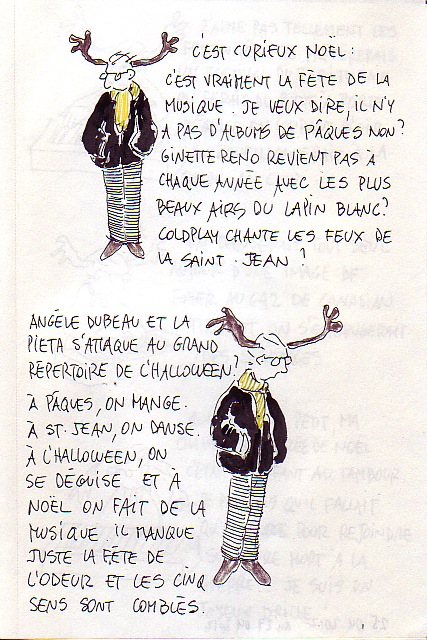 C'EST CURIEUX NOËL :
C'EST VRAIMENT LA FÊTE DE LA
MUSIQUE. JE VEUX DIRE, IL N'Y
A PAS D'ALBUMS DE PÂQUES NON?
GINETTE RENO REVIENT PAS À
CHAQUE ANNÉE AVEC LES PLUS
BEAUX AIRS DU LAPIN BLANC?
COLDPLAY CHANTE LES FEUX DE
LA SAINT-JEAN?
ANGÈLE DUBEAU ET LA
PIETA S'ATTAQUE AU GRAND
RÉPERTOIRE DE L'HALLOWEEN?
À PÂQUES, ON MANGE.
À ST-JEAN, ON DANSE.
À L'HALLOWEEN, ON
SE DÉGUISE ET À
NOËL ON FAIT DE LA
MUSIQUE. IL MANQUE
JUSTE LA FÊTE DE
L'ODEUR ET LES CINQ
SENS SONT COMBLÉS.